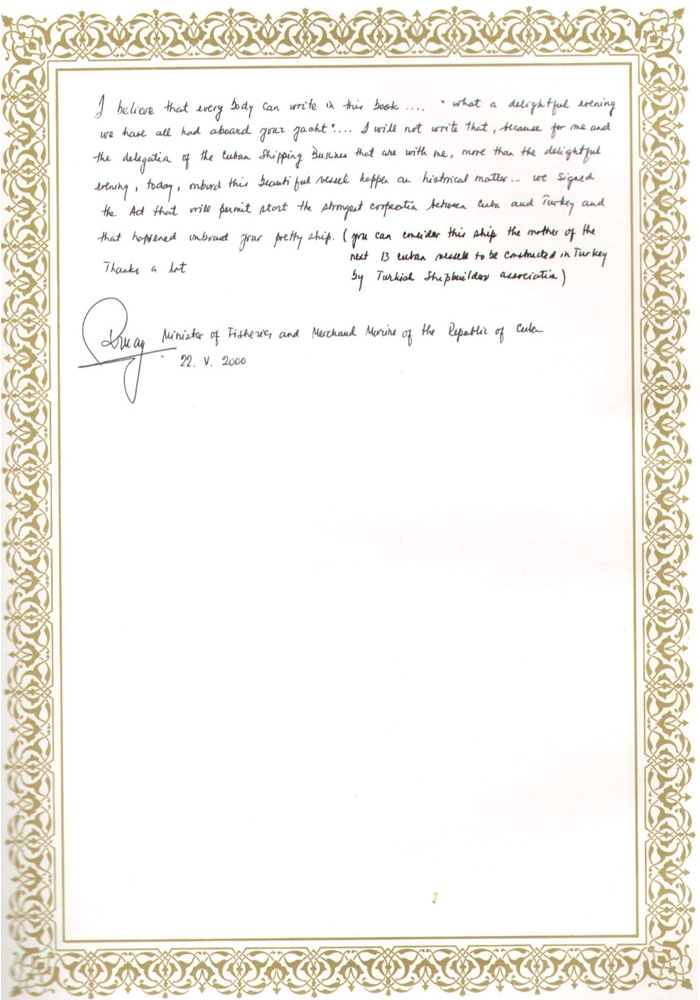 I believe that every body can write in this book .... " what a delightful evening
we have all had aboard your yacht ".... I will not write that, because for me and
the delegation of the Cuban Shipping Bussines that are with me, more than the delightful
evening, today, onburd this beautiful vessel happen an historical matter... we signed
the Act that will permit start the strongest corpeation between Cuba and Turkey and
that happened unboard your pretty ship. ( you can consider this ship the mother of the
next 13 cuban vessels to be constructed in Turkey
Thanks a lot
by Turkish Shipbuilders association )
Minister of Fisheries and Merchand Marine of the Republic of Cuba
22. V. 2000